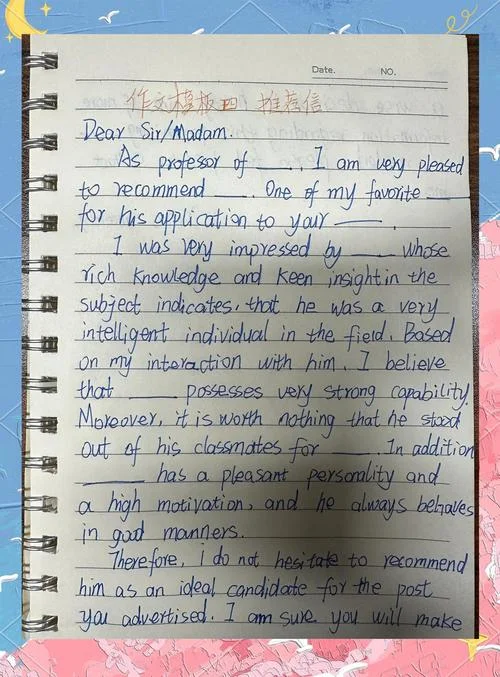 Date. NO.
作文模板四 推荐信
Dear Sir/Madam.
As professor of ____. I am very pleased
to recommend ____. One of my favorite ____
for his application to your ____.
I was very impressed by ____ whose
rich knowledge and keen insightin the
subject indicates, that he was a very
intelligent individual in the field. Based
on my interaction with him. I believe
that ____ possesses very strong capability.
Moreover, it is worth nothing that he stood
out of his classmates for ____. In addition
____ has a pleasant personality and
a high motivation, and he always behaves
in good manners.
Therefore, i do not hesitate to recommend
him as an ideal candidate for the post
you advertised. I am sure you will make